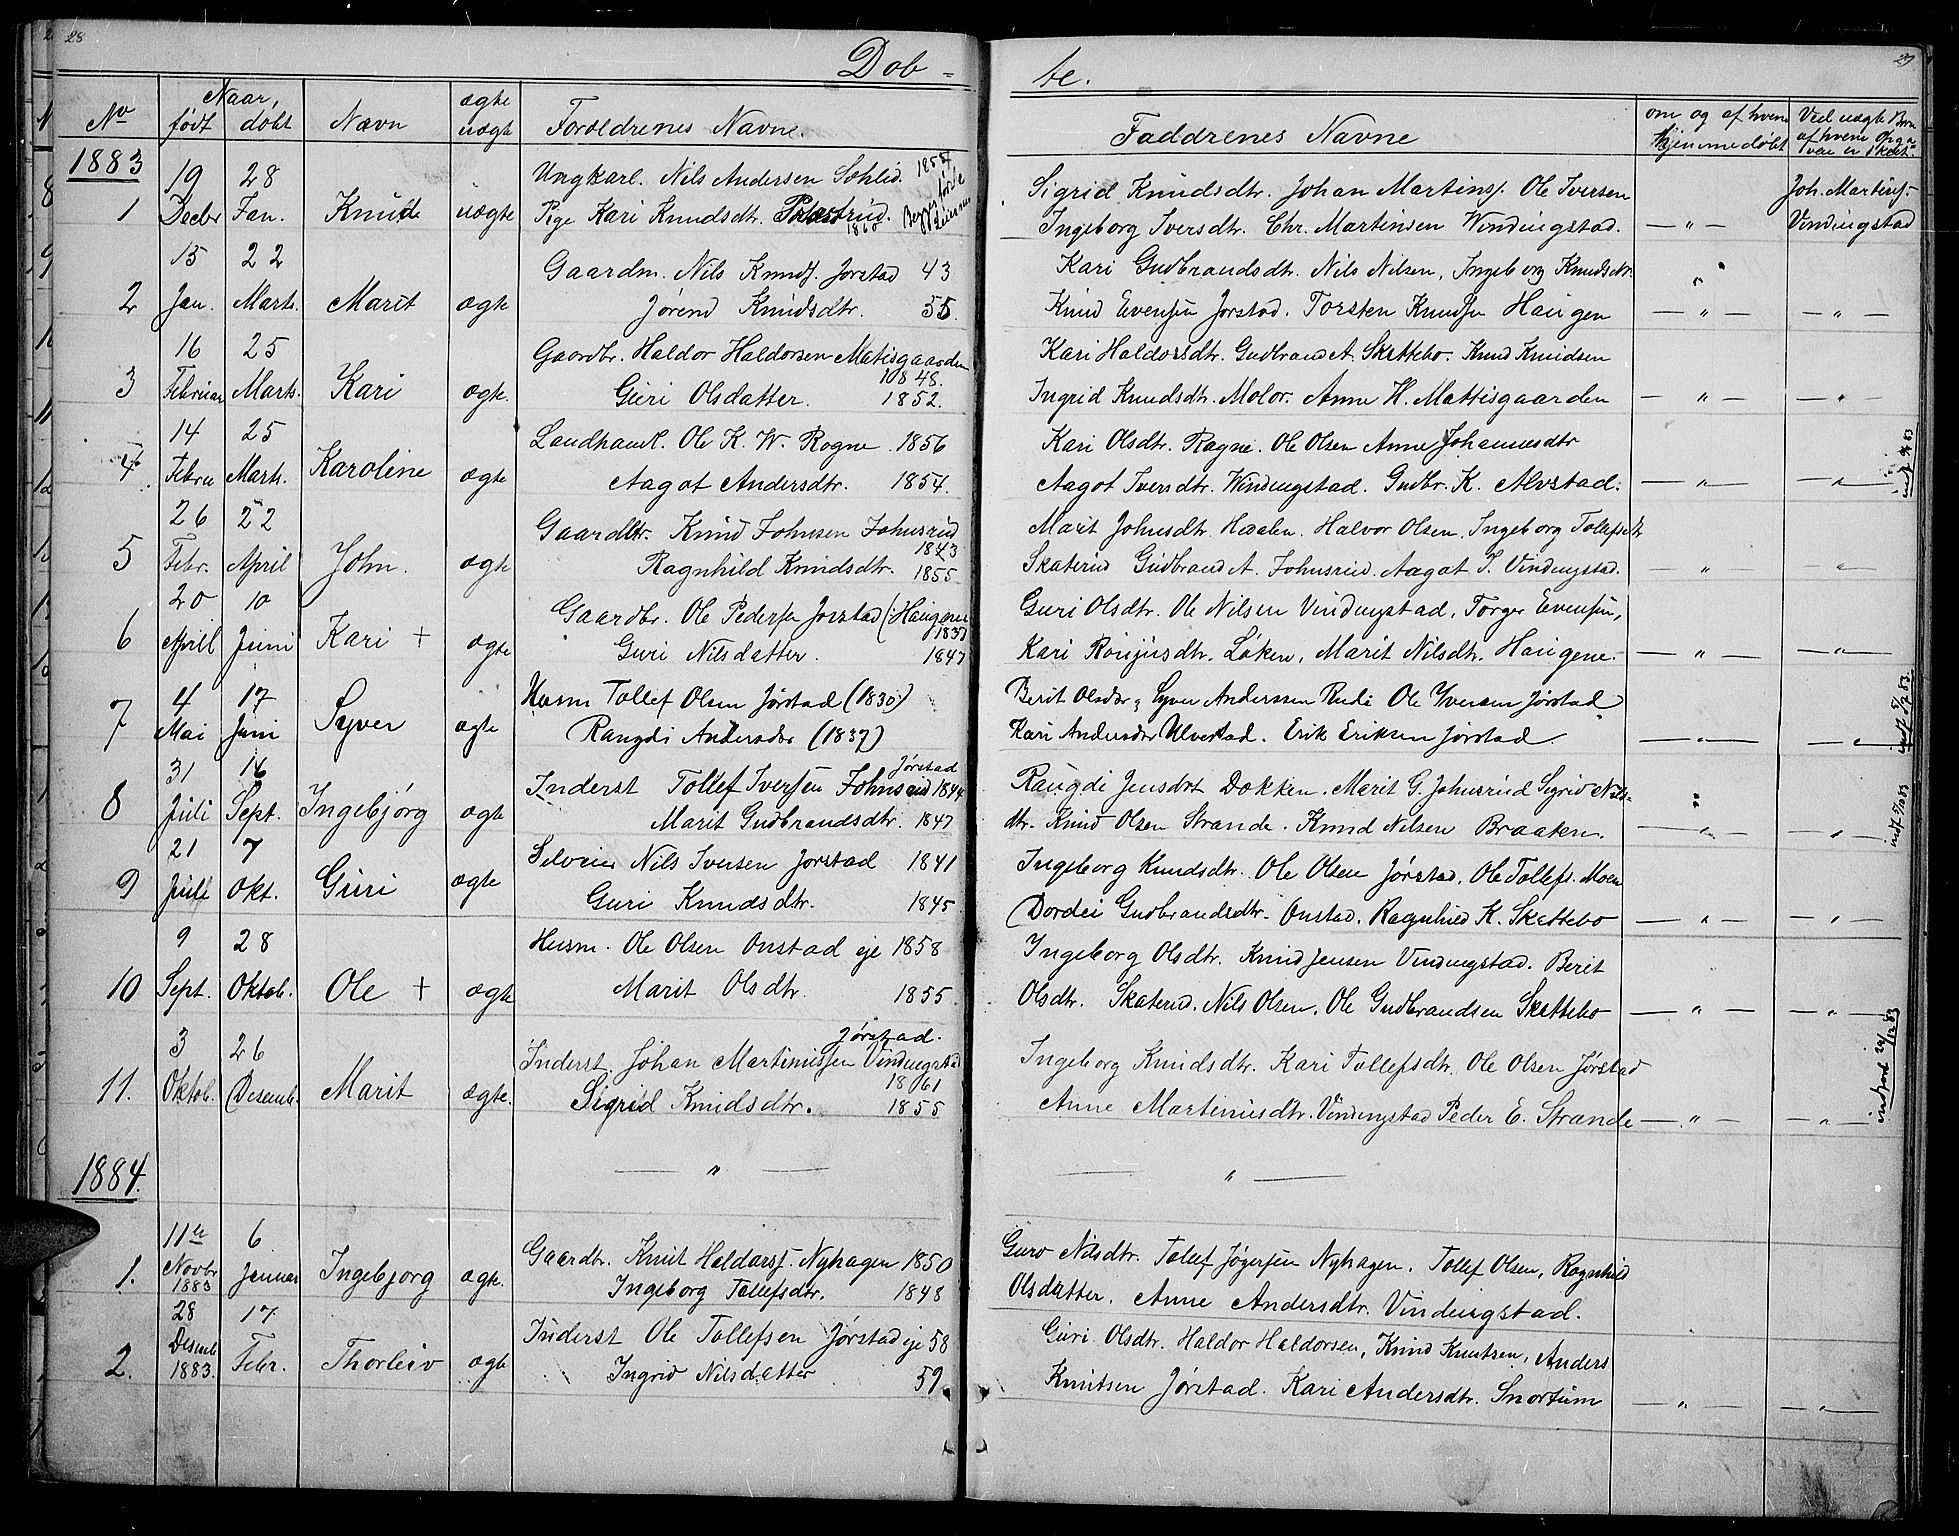 28
Dob-
be.
29
No
Naar,
født
døbt
Navn
ægte
uægte
Forældrenes Navne.
Faddrenes Navne
om og af hvem
Hjemmedøbt
Ved uægte Børn
af hvem Opga-
ven er skeet.
1883
19 28 Ungkarl. Nils Andersen Sohlid. 1855
Sigrid Knudsdtr. Johan Martinsf. Ole Iversen
Joh. Martinsf-
1 Decbr Jan. Knude uægte Pige Kari Knudsdtr. 1860
Ingeborg Iversdtr. Chr. Martinsen Windingstad. — " — Vindingstad
15 22 Gaardm. Nils Knudf. Jorstad 43
Kari Gudbrandsdtr. Nils Nilsen, Ingeborg Knudsdtr.
2 Jan. Marts. Marit ægte Jørend Knudsdtr. 55.
Knud Evensen Jorstad. Torsten Knudsen Haugen — " — — " —
16 25 Gaardbr. Haldor Haldorsen Matisgaarden 1848.
Kari Haldorsdtr. Gudbrand A. Skattebo. Knud Knudsen
3 Februar Marts. Kari ægte. Guri Olsdatter. 1852.
Ingrid Knudsdtr. Molor. Anne H. Mattisgaarden — " — — " —
14 25 Landhandl. Ole K. W. Rogne. 1856
Kari Olsdtr. Ragne. Ole Olsen Anne Johannesdtr
4 Febru Marts. Karoline ægte Aagot Andersdtr. 1854.
Aagot Iversdtr. Windingstad. Gudbr. K. Alvstad. — " — — " —
26 22 Gaardbr. Knud Johnsen Johnsrud 1843
Marit Johnsdtr. Haalen. Halvor Olsen. Ingeborg Tollefsdtr
5 Febr. April John. ægte Ragnhild Knudsdtr. 1855
Skaterud Gudbrand A. Johnsrud. Aagot I. Vindingstad. " — " —
20 10 Gaardbr. Ole Pedersen Jorstad (Haugene 1837
Guri Olsdtr. Ole Nilsen Vindingstad, Torger Evensen,
6 April Juni Kari + ægte Guri Nilsdatter. 1847
Kari Ronjusdtr. Løken, Marit Nilsdtr. Haugene. — " — — " —
4 17 Husm Tollef Olsen Jørstad (1830)
Berit Olsdtr, Syver Anderssen Rudi Ole Yversen Jørstad
7 Mai Juni Syver ægte Rangdi Andersdtr (1837)
Kari Andersdtr Ulvestad. Erik Eriksen Jørstad. — " — — " —
31 16 Inderst Tollef Iversen Johnsrud Jørstad 1844
Rangdi Jensdot Dokken. Marit G. Johnsrud Sigrid Nils-
8 Juli Sept. Ingebjørg ægte Marit Gudbrandsdtr. 1847
dtr. Knud Olsen Strande. Knud Nilsen Braaten. — " — — " —
21 7 Selveier Nils Iversen Jorstad 1841
Ingeborg Knudsdtr. Ole Olsen Jørstad. Ole Tollefs. Moen
9 Juli Okt. Guri ægte Guri Knudsdtr. 1845
Dordei Gudbrandsdtr. Onstad. Ragnhild K. Skattebo — " — — " —
9 28 Husm. Ole Olsen Onstad eje 1858
Ingeborg Olsdtr. Knud Jensen Vindingstad. Berit
10 Sept. Oktob. Ole + ægte Marit Olsdtr. 1855
Olsdtr. Skaterud. Nils Olsen. Ole Gudbrandsen Skattebo — " — — " —
3 26 Inderst. Johan Martinussen Vindingstad Jørstad. 1861
Ingeborg Knudsdtr. Kari Tollefsdtr. Ole Olsen Jørstad
11. Oktob. Desemb. Marit ægte. Sigrid Knudsdtr. 1855
Anne Martinusdtr. Vindingstad Peder E. Strande — " — — " —
1884.
— " —
— " —
11te 6 Gaardbr. Knut Haldorsf. Nyhagen 1850
Guro Nilsdtr. Tollef Jøgersen Nyhagen. Tollef Olsen, Ragnhild
1. Novbr 1883 Januar Ingebjorg ægte. Ingeborg Tollefsdtr. 1848
Olsdatter. Anne Andersdtr. Vindingstad.
28 17 Inderst Ole Tollefsen Jørstad eje 58
Guri Olsdtr. Haldor Haldorsen, Knud Knutsen, Anders
2. Desemb 1883. Febr. Thorleiv ægte Ingrid Nilsdatter 59.
Knutsen Jørstad. Kari Andersdtr. Snortum — " — — " —